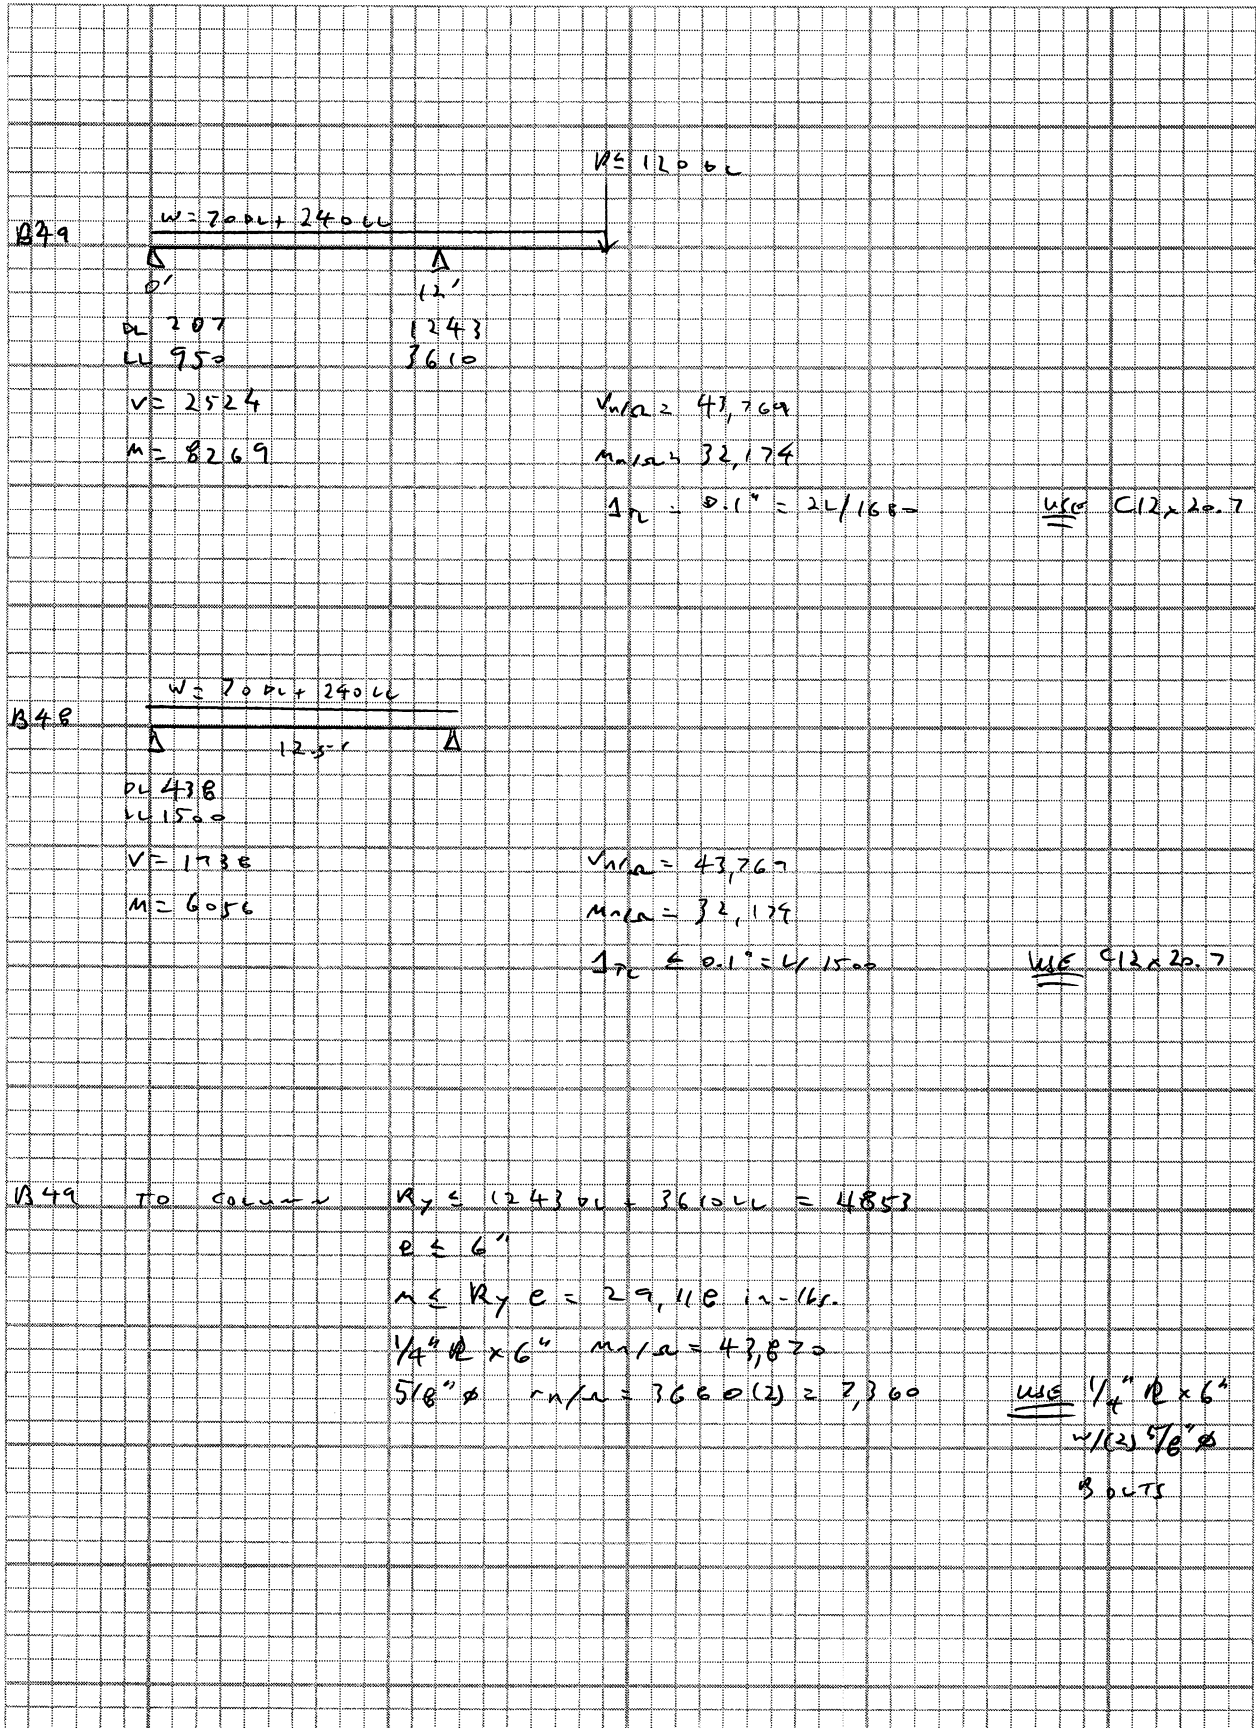 P ≤ 120 DL
W = 70 DL + 240 LL
B49
0' 12'
DL 207 1243
LL 950 3610
V = 2524 Vn/Ω = 43,769
M = 8269 Mn/Ω = 32,174
ΔTL = 0.1" = 2L/1680 USE C12x20.7
W = 70 DL + 240 LL
B48
12.5'
DL 438
LL 1500
V = 1938 Vn/Ω = 43,769
M = 6056 Mn/Ω = 32,174
ΔTL ≤ 0.1" = L/1500 USE C12x20.7
B49 TO COLUMN Ry ≤ 1243 DL + 3610 LL = 4853
e ≤ 6"
M ≤ Ry e = 29,118 in-lbs.
1/4" PL x 6" Mn/Ω = 43,820
5/8" φ rn/Ω = 3680 (2) = 7,360 USE 1/4" PL x 6"
w/(2) 5/8" φ
BOLTS